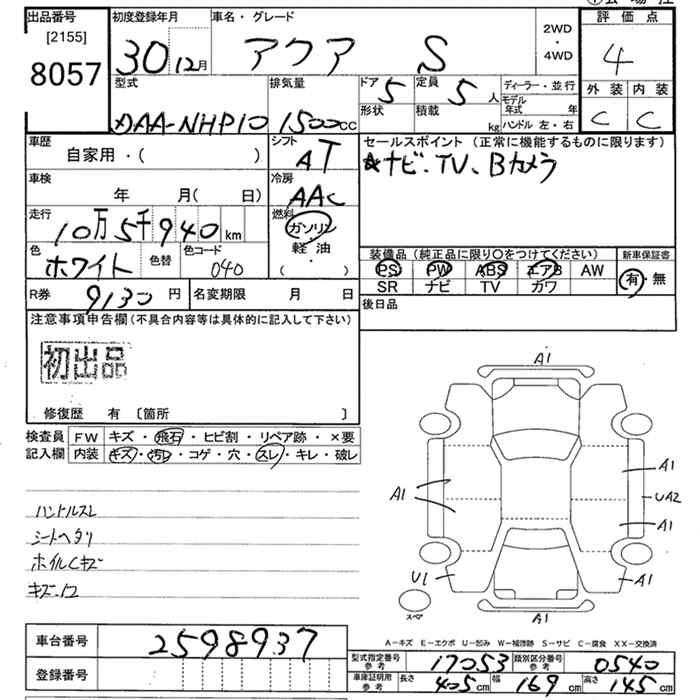 出品番号
[2155]
8057
初度登録年月
30 12月
車名・グレード
アクア S
2WD
・
4WD
評価点
4
外装 内装
C C
型式
DAA-NHP10
排気量
1500cc
ドア 5
定員 5人
形状
積載 kg
ディーラー・並行
モデル年式 年
ハンドル 左・右
車歴
自家用・( )
シフト
AT
車検
年 月( 日)
冷房
AAC
走行
10万5千940km
燃料
ガソリン
軽油
( )
色
ホワイト
色替
色コード
040
R券 9130円
名変期限 月 日
セールスポイント(正常に機能するものに限ります)
★ナビ、TV、Bカメラ
装備品(純正品に限り〇をつけてください)
PS PW ABS エアB AW
SR ナビ TV カワ
新車保証書
有・無
後日品
注意事項申告欄(不具合内容等は具体的に記入して下さい)
初出品
修復歴 有 [箇所 ]
検査員記入欄
FW キズ・飛石・ヒビ割・リペア跡・×要
内装 キズ・汚レ・コゲ・穴・スレ・キレ・破レ
ハンドルスレ
シートヘタリ
ホイルCキズ
A1
A1
A1
UA2
A1
U1
A1
スペア
A1
A-キズ E-エクボ U-凹み W-補修跡 S-サビ C-腐食 XX-交換済
車台番号
2598937
登録番号
型式指定番号参考 17053
類別区分番号参考 0540
車庫証明用参考
長さ 405cm
幅 169cm
高さ 145cm